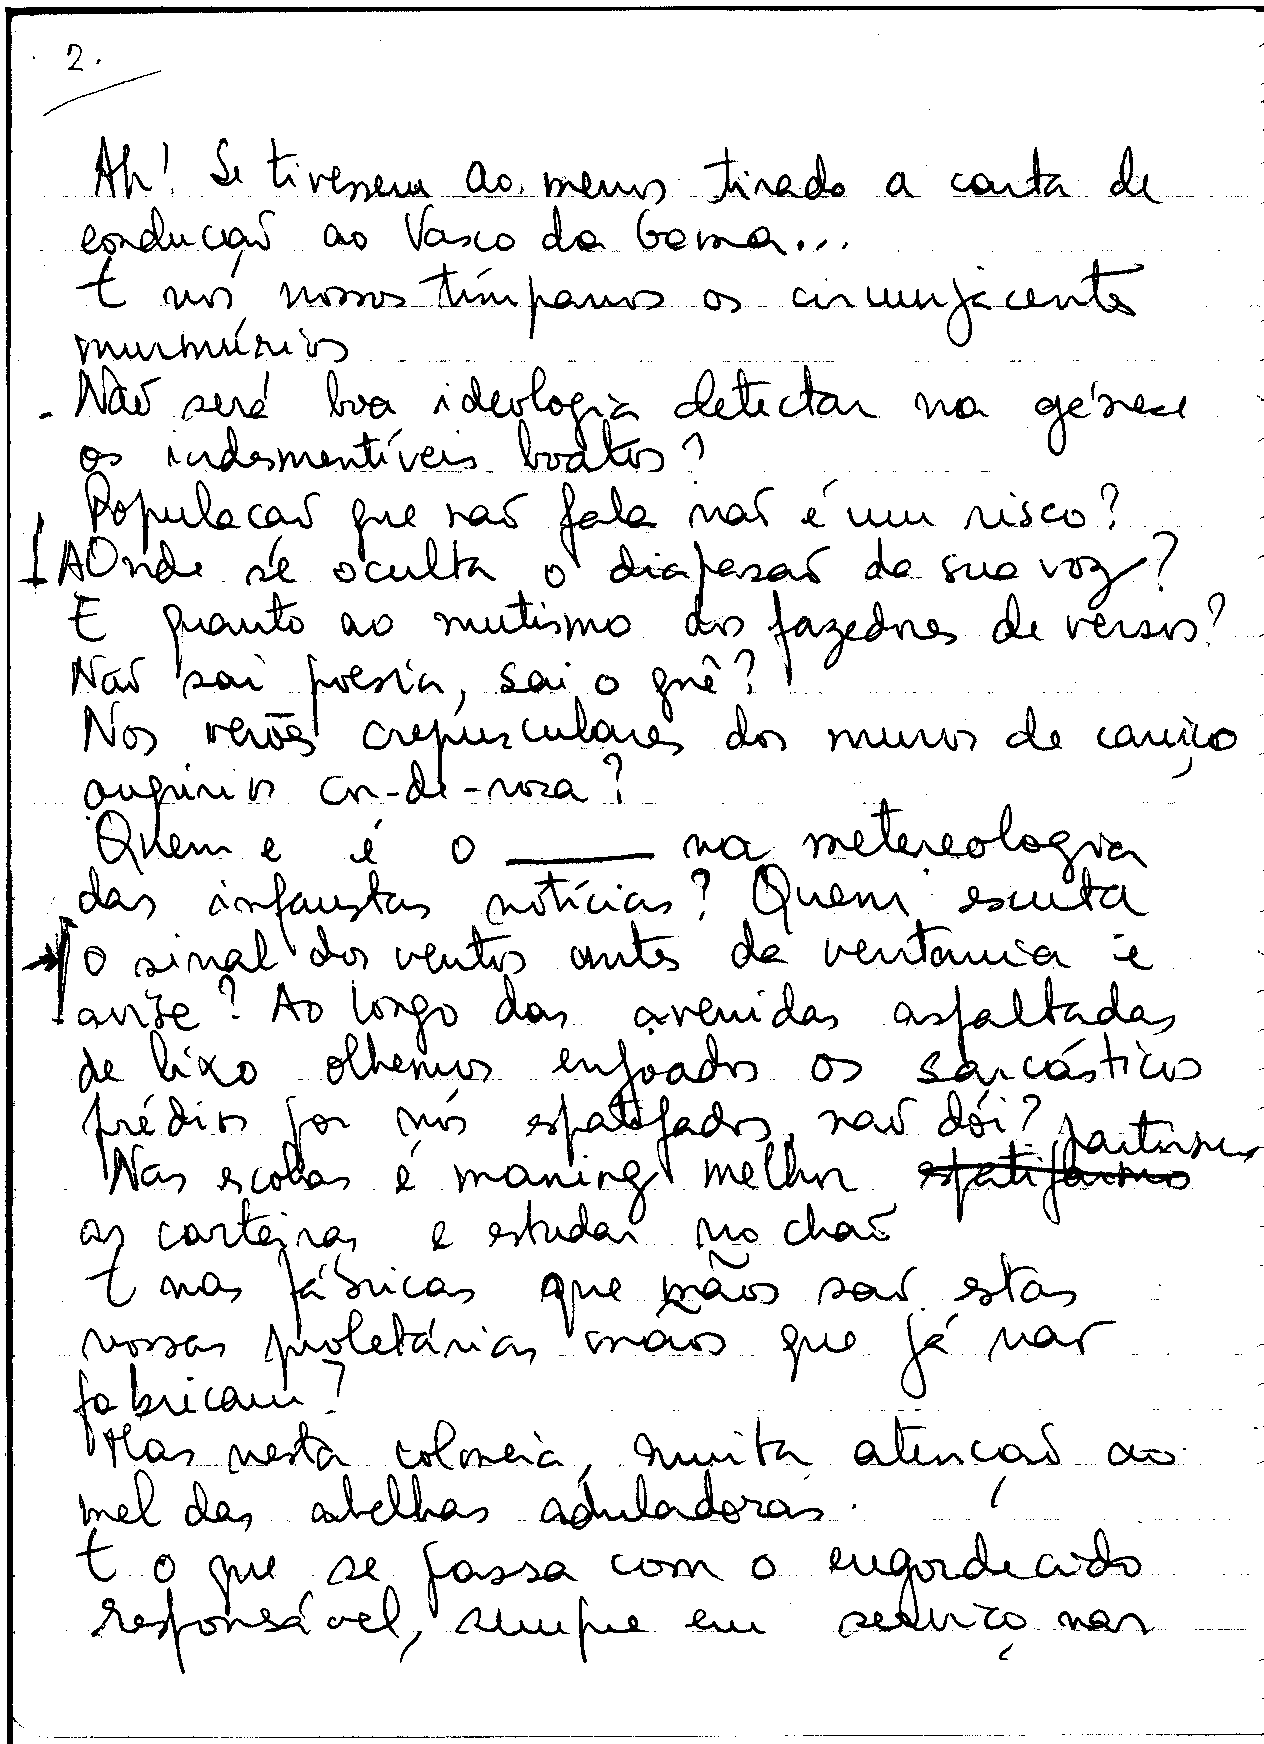 2.
Ah! Se tivessem ao menos tirado a carta de
condução ao Vasco da Gama...
E nos nossos tímpanos os circunjacentes
murmúrios
- Não será boa ideologia detectar na génese
os indesmentíveis boatos?
População que não fala não é um risco?
AOnde se oculta o diapasão da sua voz?
E quanto ao mutismo dos fazedores de versos?
Não sai poesia, sai o quê?
Nos verões crepusculares dos muros de caniço
augúrios cor-de-rosa?
Quem e é o ______ na metereologia
das infaustas notícias? Quem escuta
o sinal dos ventos antes da ventania e
avise? Ao longo das avenidas asfaltadas
de lixo olhemos enjoados os sarcásticos
prédios por nós espatifados, não dói?
Nas escolas é maningi melhor espatifarmos partirmos
as carteiras e estudar no chão
E nas fábricas que mãos são estas
nossas proletárias mãos que já não
fabricam?
Mas nesta colmeia, muita atenção ao
mel das abelhas aduladoras.
E o que se passa com o engordecido
responsável, sempre em serviço nas